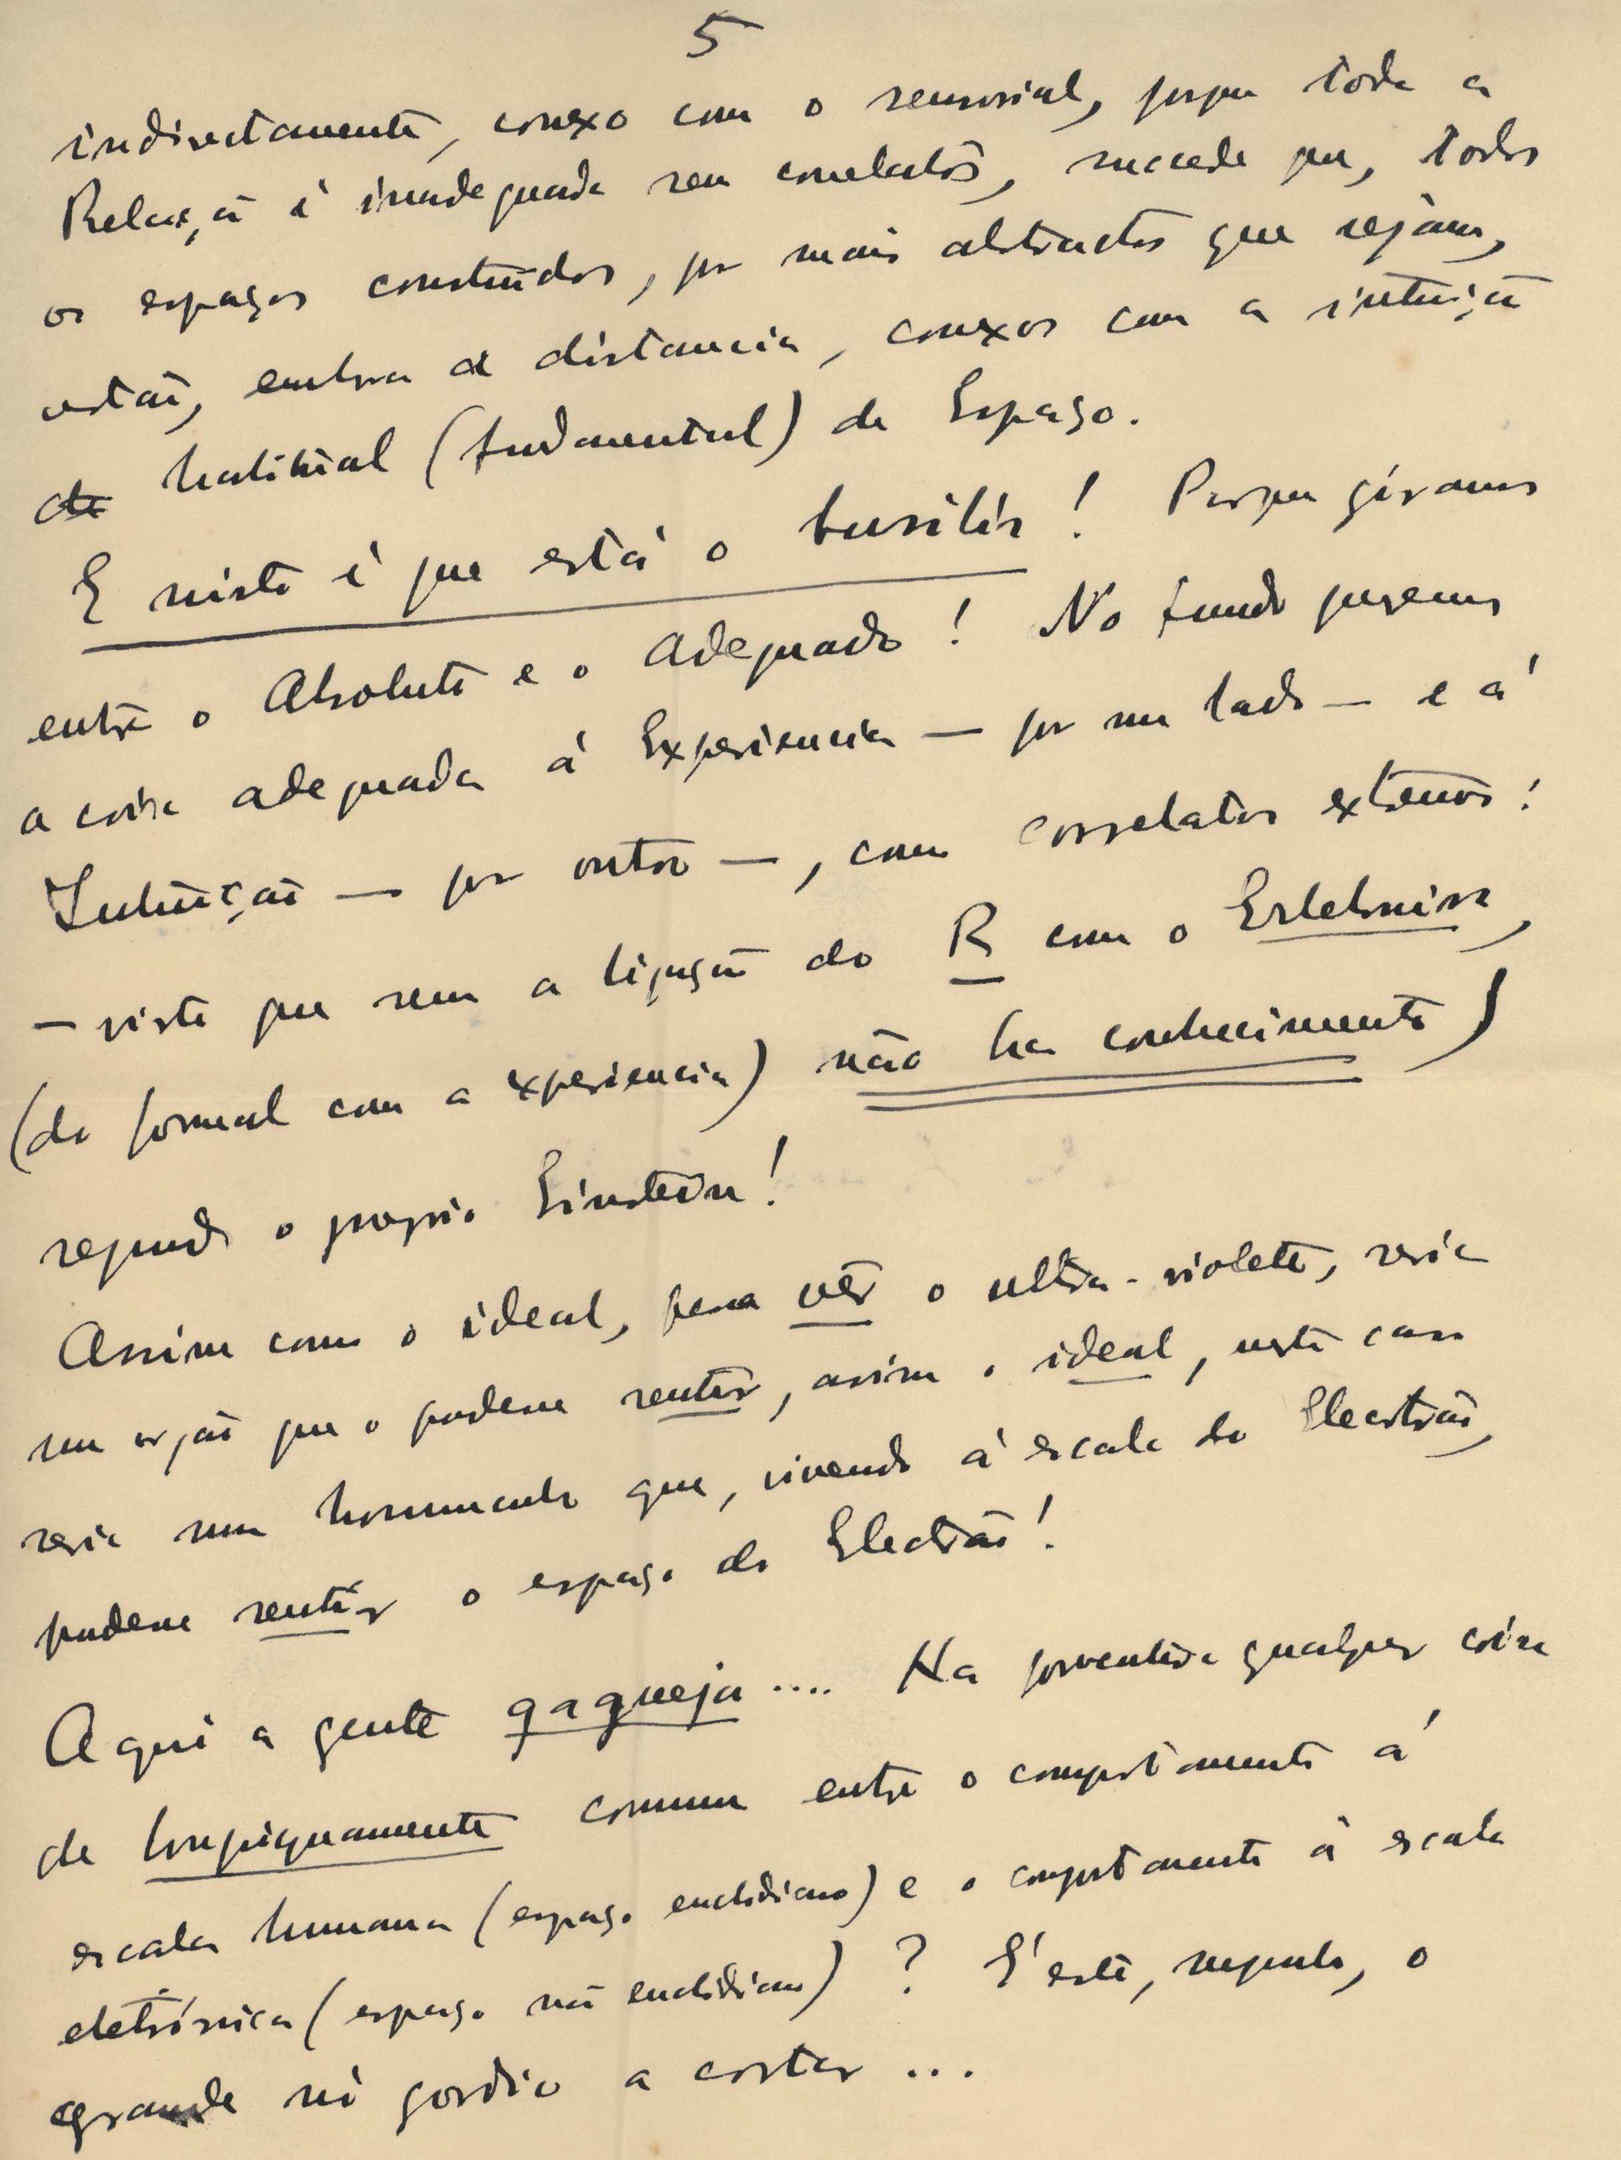 5
indirectamente, conexo com o sensorial, porque toda a
Relação é inadequada sem correlatos, sucede que, todos
os espaços construidos, por mais abstractos que sejam,
estão, embora a distancia, conexos com a intuição
de habitual (fundamental) de Espaço.
E nisto é que está o busilis! Porque giramos
entre o Absoluto e o Adequado! No fundo queremos
a coisa adequada á Experiencia — por um lado — e á
Intuição — por outro —, com correlatos externos!
— visto que sem a ligação do R com o Erlebniss,
(do formal com a experiencia) não ha conhecimento)
segundo o proprio Einstein!
Assim como o ideal, para vêr o ultra-violeta, seria
um orgão que o pudesse sentir, assim o ideal, neste caso
seria um homunculo que, vivendo á escala do Electrão,
pudesse sentir o espaço do Electrão!
Aqui a gente gagueja .... Ha porventura qualquer coisa
de longiquamente commum entre o comportamento á
escala humana (espaço euclidiano) e o comportamento á escala
eletrónica (espaço não euclidiano)? E' este, segundo, o
grande nó gordio a cortar ...